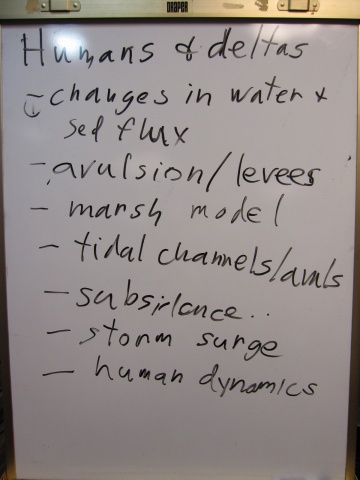 DRAPER
Humans & deltas
- changes in water &
sed flux
- avulsion/levees
- marsh model
- tidal channels/
- subsidence..
- storm surge
- human dynamics